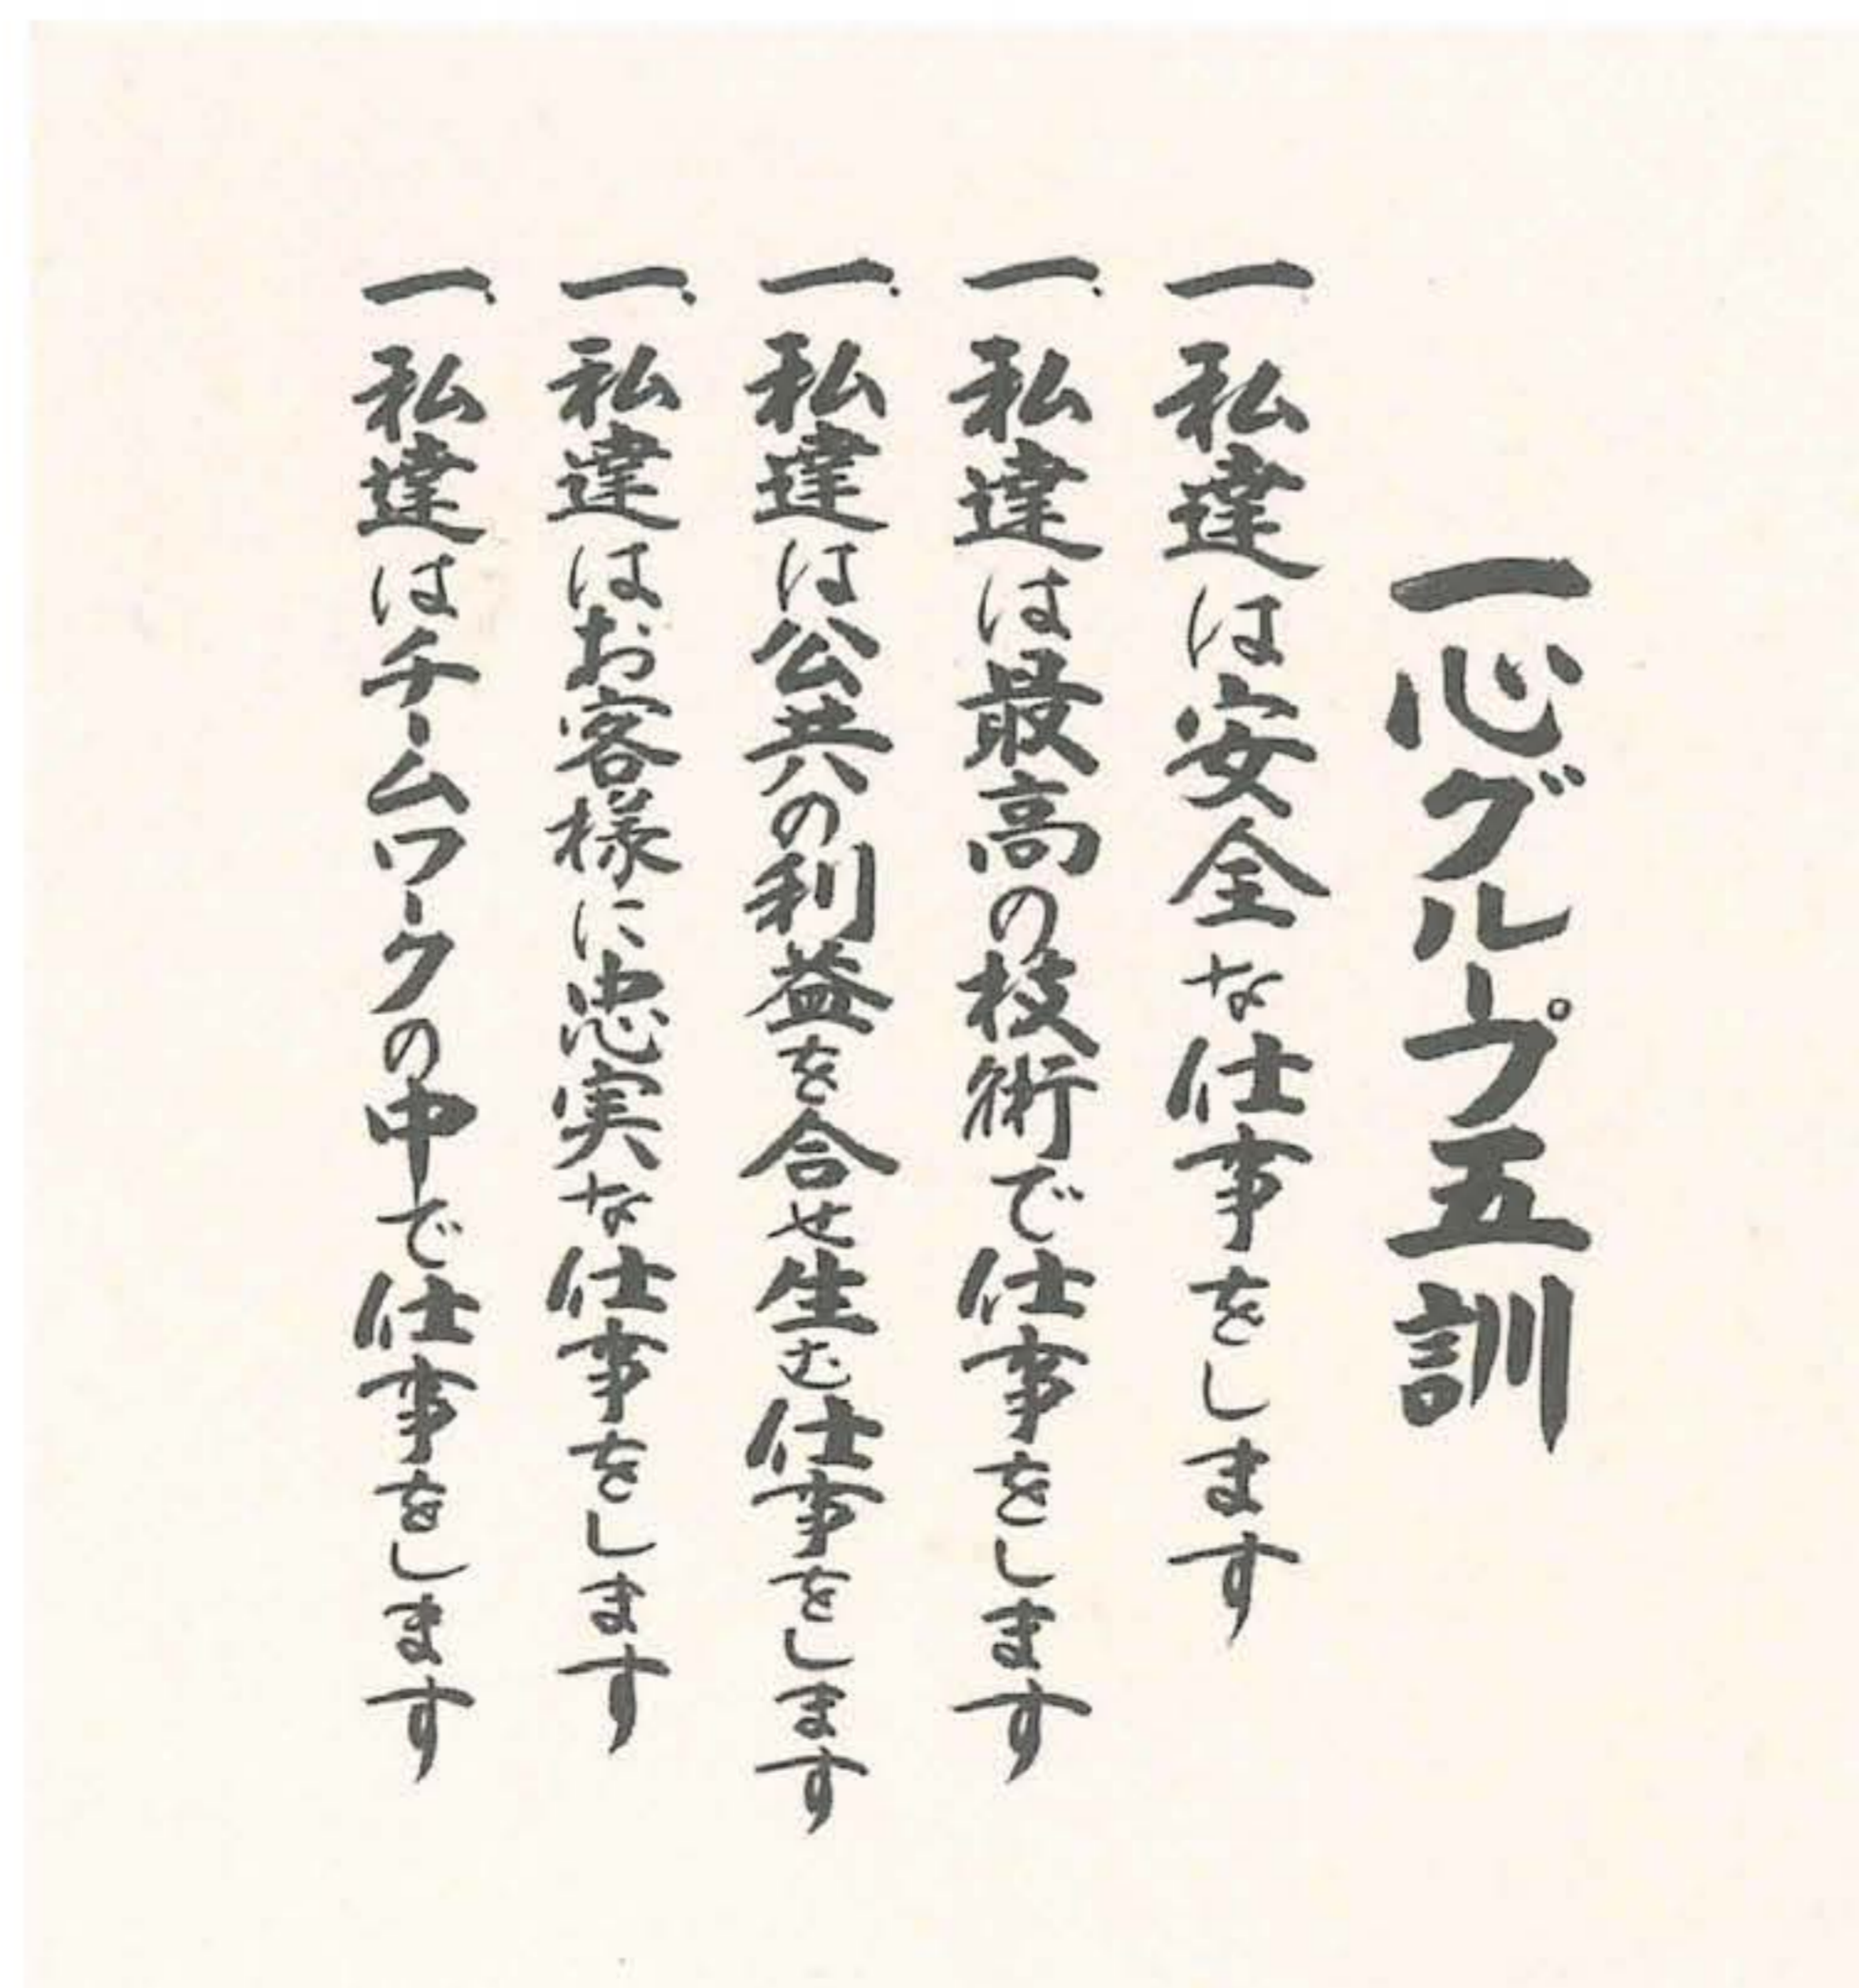 一心グループ五訓
一 私達は安全な仕事をします
一、私達は最高の技術で仕事をします
一、私達は公共の利益を合せ生む仕事をします
一、私達はお客様に忠実な仕事をします
一、私達はチームワークの中で仕事をします